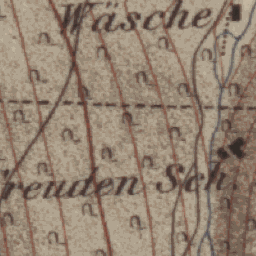 Wäsche
Freuden Sch.